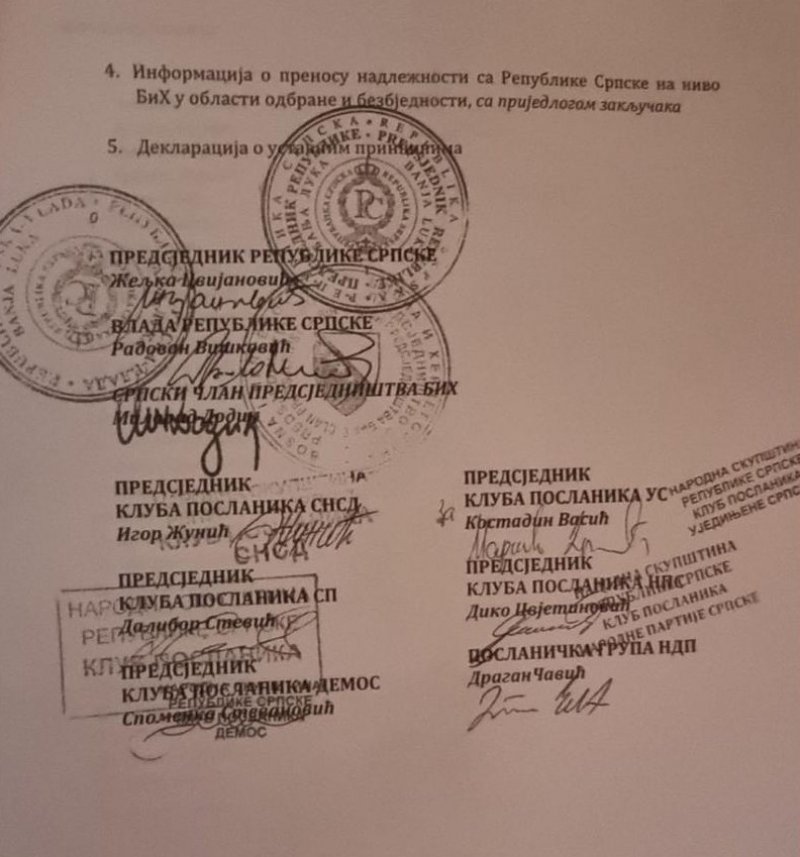 4. Информација о преносу надлежности са Републике Српске на ниво
БиХ у области одбране и безбједности, са приједлогом закључака
5. Декларација о уставним принципима
ПРЕДСЈЕДНИК РЕПУБЛИКЕ СРПСКЕ
Жељка Цвијановић
ВЛАДА РЕПУБЛИКЕ СРПСКЕ
Радован Вишковић
СРПСКИ ЧЛАН ПРЕДСЈЕДНИШТВА БИХ
Милорад Додик
ПРЕДСЈЕДНИК
КЛУБА ПОСЛАНИКА СНСД
Игор Жунић
СНСД
ПРЕДСЈЕДНИК
КЛУБА ПОСЛАНИКА СП
Далибор Стевић
НАРОДНА
РЕПУБЛИКЕ СРПСКЕ
КЛУБ ПОСЛАНИКА
ПРЕДСЈЕДНИК
КЛУБА ПОСЛАНИКА ДЕМОС
Споменка Стевановић
РЕПУБЛИКЕ СРПСКЕ
ДЕМОС
ПРЕДСЈЕДНИК
КЛУБА ПОСЛАНИКА УС
за Костадин Васић
НАРОДНА СКУПШТИНА
РЕПУБЛИКЕ СРПСКЕ
КЛУБ ПОСЛАНИКА
УЈЕДИЊЕНЕ СРПС
ПРЕДСЈЕДНИК
КЛУБА ПОСЛАНИКА НПС
Дико Цвјетановић
НАРОДНА СКУПШТИНА
РЕПУБЛИКЕ СРПСКЕ
КЛУБ ПОСЛАНИКА
НАРОДНЕ ПАРТИЈЕ СРПСКЕ
ПОСЛАНИЧКА ГРУПА НДП
Драган Чавић